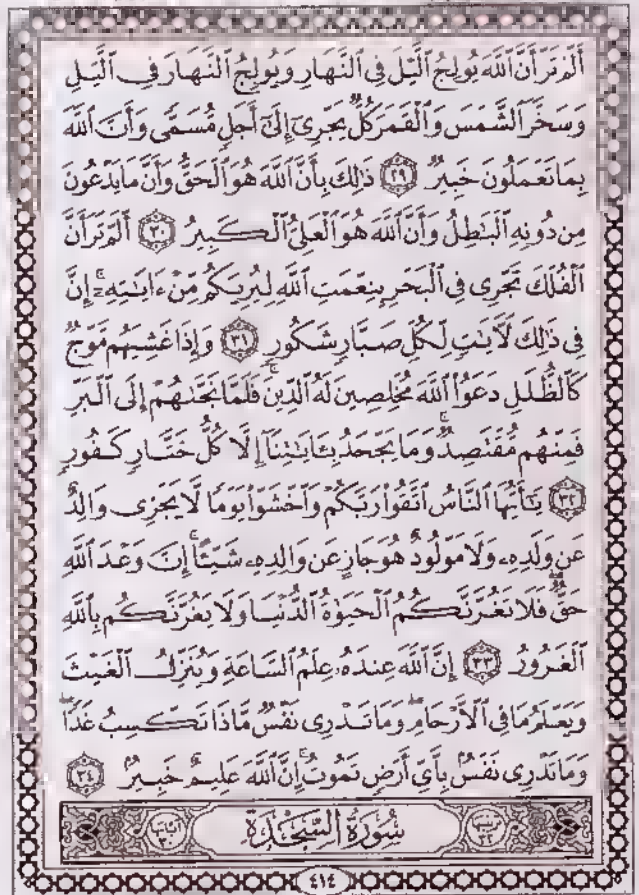 أَلَمْ تَرَ أَنَّ ٱللَّهَ يُولِجُ ٱلَّيْلَ فِى ٱلنَّهَارِ وَيُولِجُ ٱلنَّهَارَ فِى ٱلَّيْلِ
وَسَخَّرَ ٱلشَّمْسَ وَٱلْقَمَرَ كُلٌّ يَجْرِىٓ إِلَىٰٓ أَجَلٍ مُّسَمًّى وَأَنَّ ٱللَّهَ
بِمَا تَعْمَلُونَ خَبِيرٌ ٢٩ ذَٰلِكَ بِأَنَّ ٱللَّهَ هُوَ ٱلْحَقُّ وَأَنَّ مَا يَدْعُونَ
مِن دُونِهِ ٱلْبَٰطِلُ وَأَنَّ ٱللَّهَ هُوَ ٱلْعَلِىُّ ٱلْكَبِيرُ ٣٠ أَلَمْ تَرَ أَنَّ
ٱلْفُلْكَ تَجْرِى فِى ٱلْبَحْرِ بِنِعْمَتِ ٱللَّهِ لِيُرِيَكُم مِّنْ ءَايَٰتِهِۦٓ إِنَّ
فِى ذَٰلِكَ لَءَايَٰتٍ لِّكُلِّ صَبَّارٍ شَكُورٍ ٣١ وَإِذَا غَشِيَهُم مَّوْجٌ
كَٱلظُّلَلِ دَعَوُا۟ ٱللَّهَ مُخْلِصِينَ لَهُ ٱلدِّينَ فَلَمَّا نَجَّىٰهُمْ إِلَى ٱلْبَرِّ
فَمِنْهُم مُّقْتَصِدٌ وَمَا يَجْحَدُ بِـَٔايَٰتِنَآ إِلَّا كُلُّ خَتَّارٍ كَفُورٍ
٣٢ يَٰٓأَيُّهَا ٱلنَّاسُ ٱتَّقُوا۟ رَبَّكُمْ وَٱخْشَوْا۟ يَوْمًا لَّا يَجْزِى وَالِدٌ
عَن وَلَدِهِۦ وَلَا مَوْلُودٌ هُوَ جَازٍ عَن وَالِدِهِۦ شَيْـًٔا إِنَّ وَعْدَ ٱللَّهِ
حَقٌّ فَلَا تَغُرَّنَّكُمُ ٱلْحَيَوٰةُ ٱلدُّنْيَا وَلَا يَغُرَّنَّكُم بِٱللَّهِ
ٱلْغَرُورُ ٣٣ إِنَّ ٱللَّهَ عِندَهُۥ عِلْمُ ٱلسَّاعَةِ وَيُنَزِّلُ ٱلْغَيْثَ
وَيَعْلَمُ مَا فِى ٱلْأَرْحَامِ وَمَا تَدْرِى نَفْسٌ مَّاذَا تَكْسِبُ غَدًا
وَمَا تَدْرِى نَفْسٌۢ بِأَىِّ أَرْضٍ تَمُوتُ إِنَّ ٱللَّهَ عَلِيمٌ خَبِيرٌۢ ٣٤
ترتيبها ٣٢ سُورَةُ السَّجْدَةِ آياتها ٣٠
٤١٤